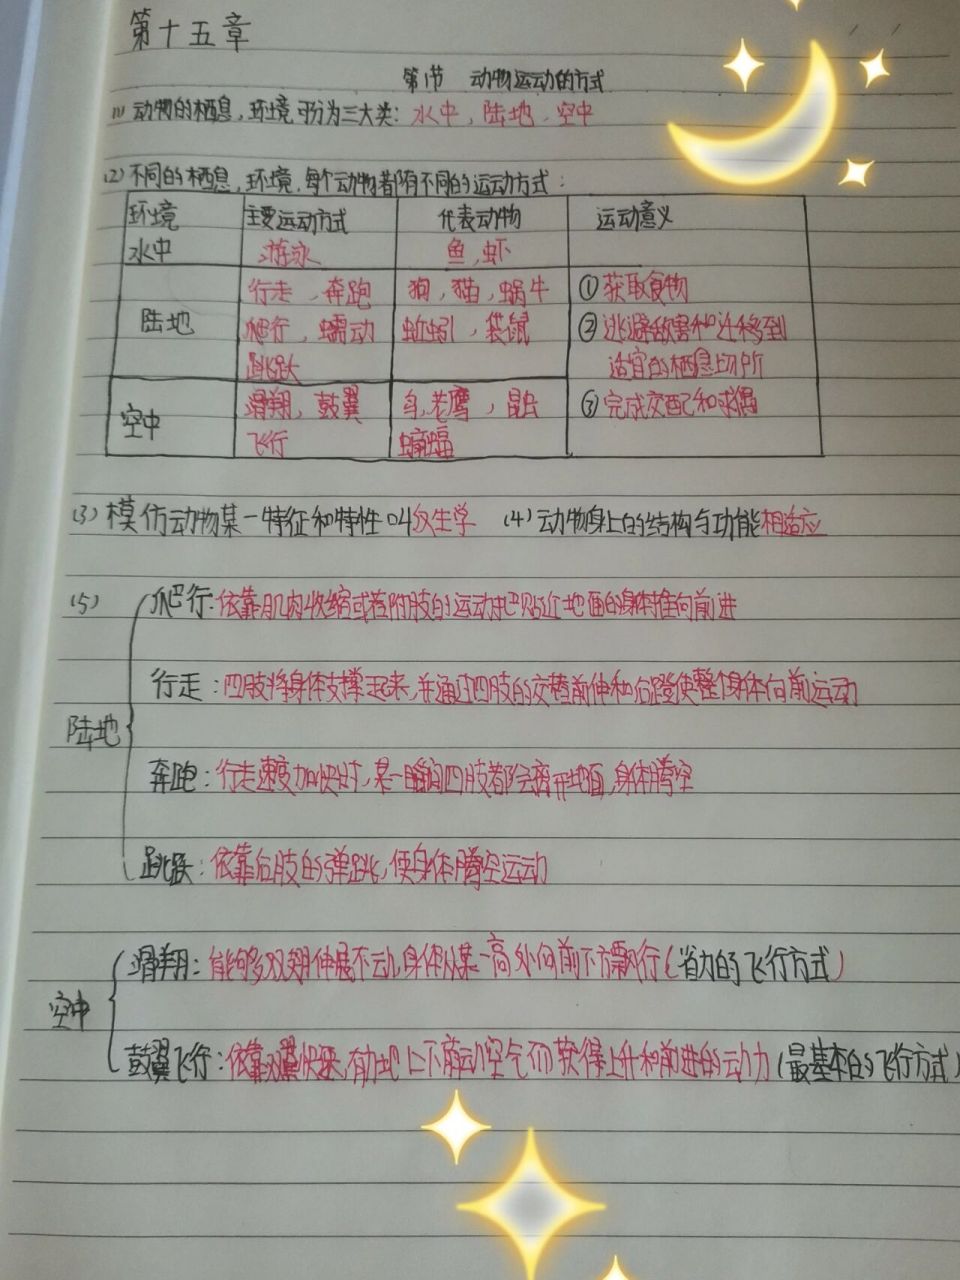 第十五章
第1节 动物运动的方式
(1) 动物的栖息,环境,可分为三大类:水中,陆地,空中
(2) 不同的栖息,环境,每个动物都有不同的运动方式:
环境 主要运动方式 代表动物 运动意义
水中 游泳 鱼,虾
行走,奔跑 狗,猫,蜗牛 ①获取食物
陆地 爬行,蠕动 蚯蚓,袋鼠 ②逃避敌害和迁移到
跳跃 适宜的栖息场所
滑翔,鼓翼 鸟,老鹰,昆虫 ③完成交配和求偶
空中 飞行 蝙蝠
(3) 模仿动物某一特征和特性叫仿生学 (4) 动物身上的结构与功能相适应
(5) 爬行:依靠肌肉收缩或者附肢的运动把贴近地面的身体推向前进
行走:四肢将身体支撑起来,并通过四肢的交替前伸和后蹬使整个身体向前运动
陆地
奔跑:行走速度加快时,某一瞬间四肢都会离开地面,身体腾空
跳跃:依靠后肢的弹跳,使身体腾空运动
滑翔:能够双翅伸展不动,身体从某一高处向前下方飘行(省力的飞行方式)
空中
鼓翼飞行:依靠双翼快速,有力地上下扇动空气而获得上升和前进的动力(最基本的飞行方式)